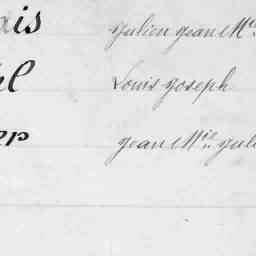 ais Julien Jean M
el Louis Joseph
er Jean Mie Juli